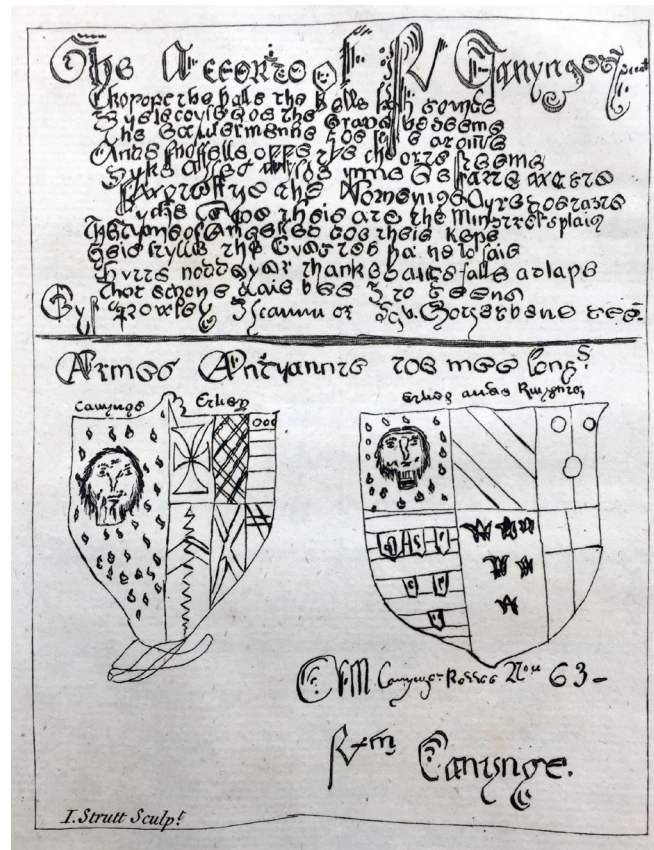 The Accounte of W Canynges Feast
Thorowe the halle the belle han sounde
Byelecoyle doe the Grave beseeme
The ealdermenne doe sytte arounde
Ande snoffelle oppe the cheorte steeme
Lyke asses wylde ynne desarte waste
Swotelye the Morneynge Ayre doe taste
Syke keene theie ate the Minstrels plaie
The dynne of Angelles doe theie kepe
Heie stylle the Guestes ha ne to saie
Butte nodde yer thankes ande falle aslape
Thus echone daie bee I to deene
Gyf Rowley Iscamm or Tyb. Gorges be ne seene
Armes Auncyannte toe mee longe
Canynge Erley
Erley ande Knyghte
Canynge Rolles No 63-
Canynge.
I. Strutt Sculpt.